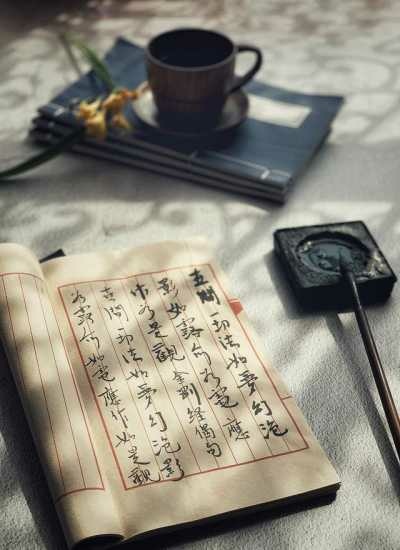 世間一切法如夢幻泡
影如露亦如電應
作如是觀 金剛經偈句
世間一切法如夢幻泡影
如露亦如電應作如是觀